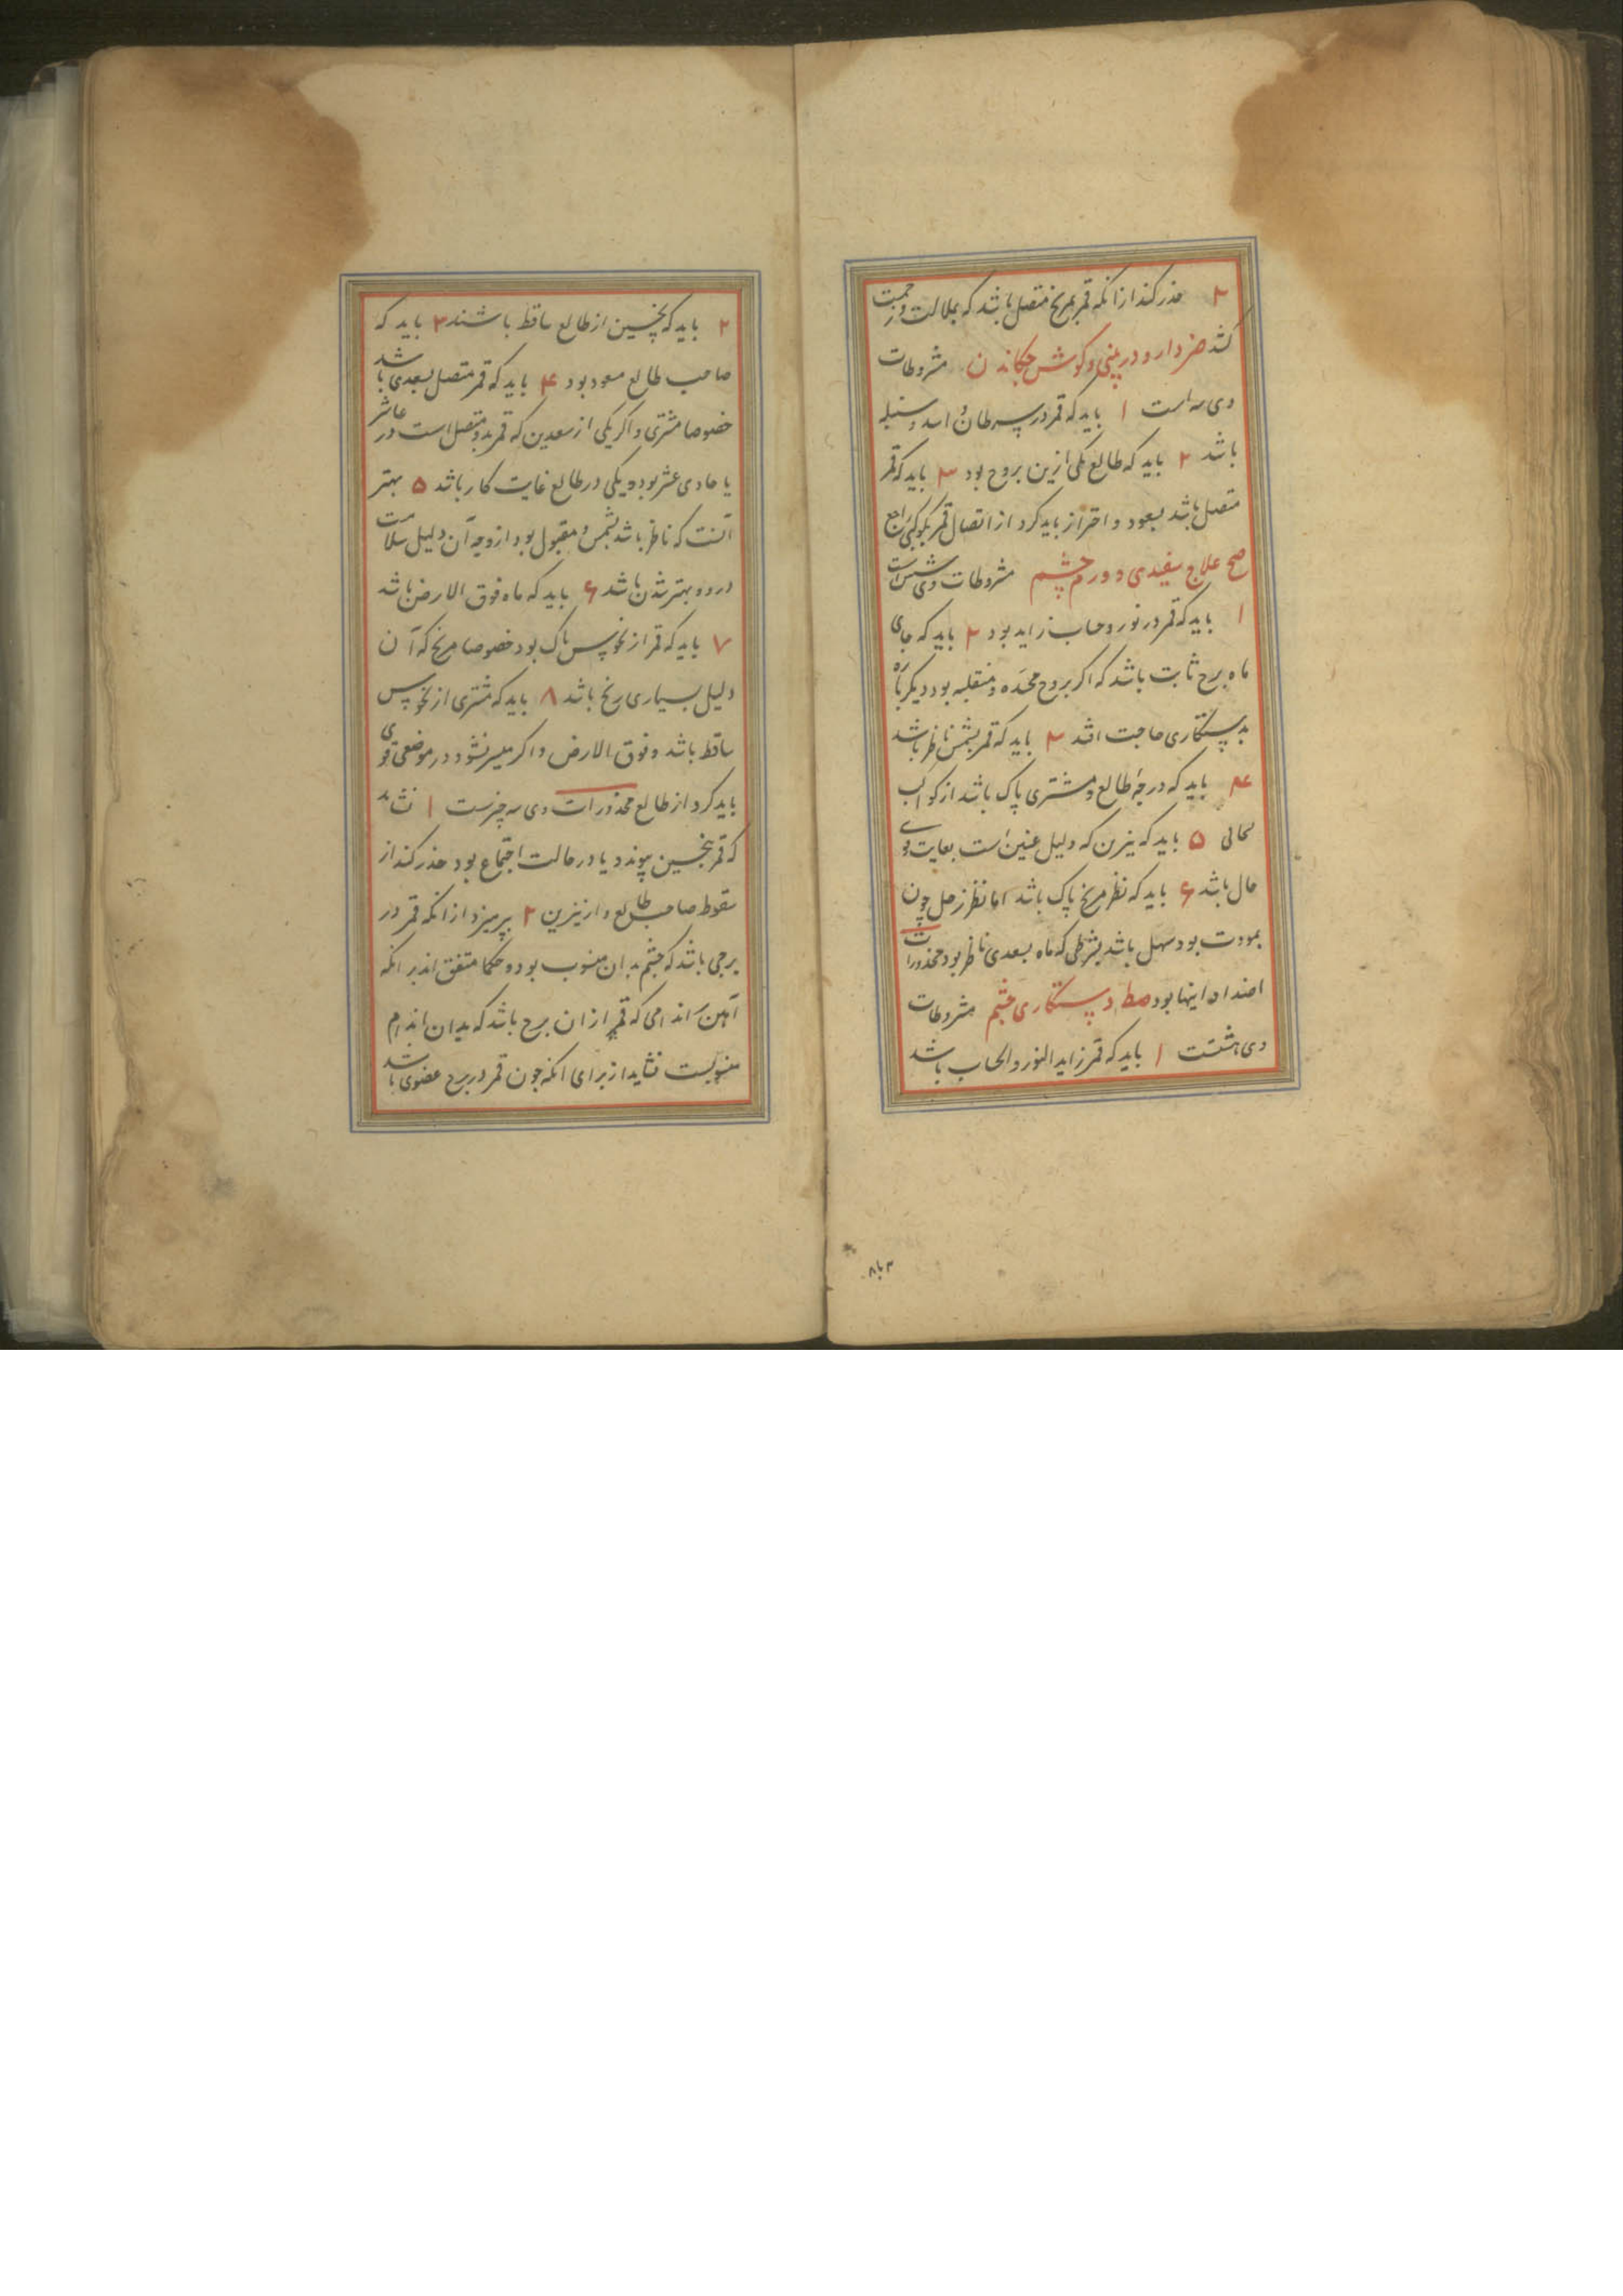 ۲ حذر کند از انکه قمر بمریخ متصل باشد که بملالت و زحمت
کشد صز دارو در بینی و کوش چکاندن مشروطات
وی سه است ۱ باید که قمر در سرطان و اسد و سنبله
باشد ۲ باید که طالع یکی ازین بروج بود ۳ باید که قمر
متصل باشد بسعود و احتراز باید کرد از اتصال قمر بکوکبی راجع
صح علاج سفیدی و ورم چشم مشروطات وی شش است
۱ باید که قمر در نور و حساب زاید بود ۲ باید که جای
ماه برج ثابت باشد که اکر بروج مجسده و منقلبه بود دیکر باره
بدستکاری حاجت افتد ۳ باید که قمر بشمس ناظر باشد
۴ باید که درجهٔ طالع و مشتری پاک باشد از کواکب
سحابی ۵ باید که نیرین که دلیل عینین است بغایت قوی
حال باشد ۶ باید که نظر مریخ پاک باشد اما نظر زحل چون
بمودت بود سهل باشد بشرطی که ماه بسعدی ناظر بود محذورات
اضداد اینها بود صط دستکاری چشم مشروطات
وی هشتست ۱ باید که قمر زاید النور و الحساب باشد
۲ باید که نحسین از طالع ساقط باشند ۳ باید که
صاحب طالع مسعود بود ۴ باید که قمر متصل بسعدی باشد
خصوصا مشتری و اکر یکی از سعدین که قمر بدو متصل است در عاشر
یا حادی عشر بود و یکی در طالع غایت کار باشد ۵ بهتر
آنست که ناظر باشد بشمس و مقبول بود از وجه آن دلیل سلامت
درد و بهتر شدن باشد ۶ باید که ماه فوق الارض باشد
۷ باید که قمر از نحوس پاک بود خصوصا مریخ که آن
دلیل بسیاری رنج باشد ۸ باید که مشتری از نحوس
ساقط باشد و فوق الارض و اکر میسر نشود در موضعی قوی
باید کرد از طالع محذورات وی سه چیزست ۱ نشاید
که قمر بنحسین پیوندد یا در حالت اجتماع بود حذر کند از
سقوط صاحب طالع و از نیرین ۲ بپرهیزد از انکه قمر در
برجی باشد که چشم بدان منسوب بود و حکما متفق اند بر انکه
آهن بر اندامی که قمر از ان برج باشد که بدان اندام
منسوبست نشاید از برای انکه چون قمر در برج عضوی باشد